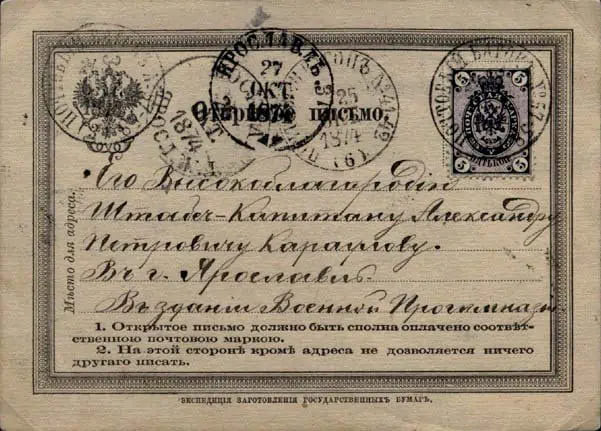 ЯРОСЛАВЛЬ
27
ОКТ.
1874
25
1874
(6)
1874
ПОЧТОВЫЙ ВАГОНЪ №
Открытое письмо.
5 5
5 5
Его Высокоблагородію
Штабсъ-Капитану Александру
Петровичу Караулову.
Въ г. Ярославлѣ.
Въ зданіи Военной Прогимназіи
Мѣсто для адреса:
1. Открытое письмо должно быть сполна оплачено соотвѣт-
ственною почтовою маркою.
2. На этой сторонѣ кромѣ адреса не дозволяется ничего
другаго писать.
ЭКСПЕДИЦІЯ ЗАГОТОВЛЕНІЯ ГОСУДАРСТВЕННЫХЪ БУМАГЪ.